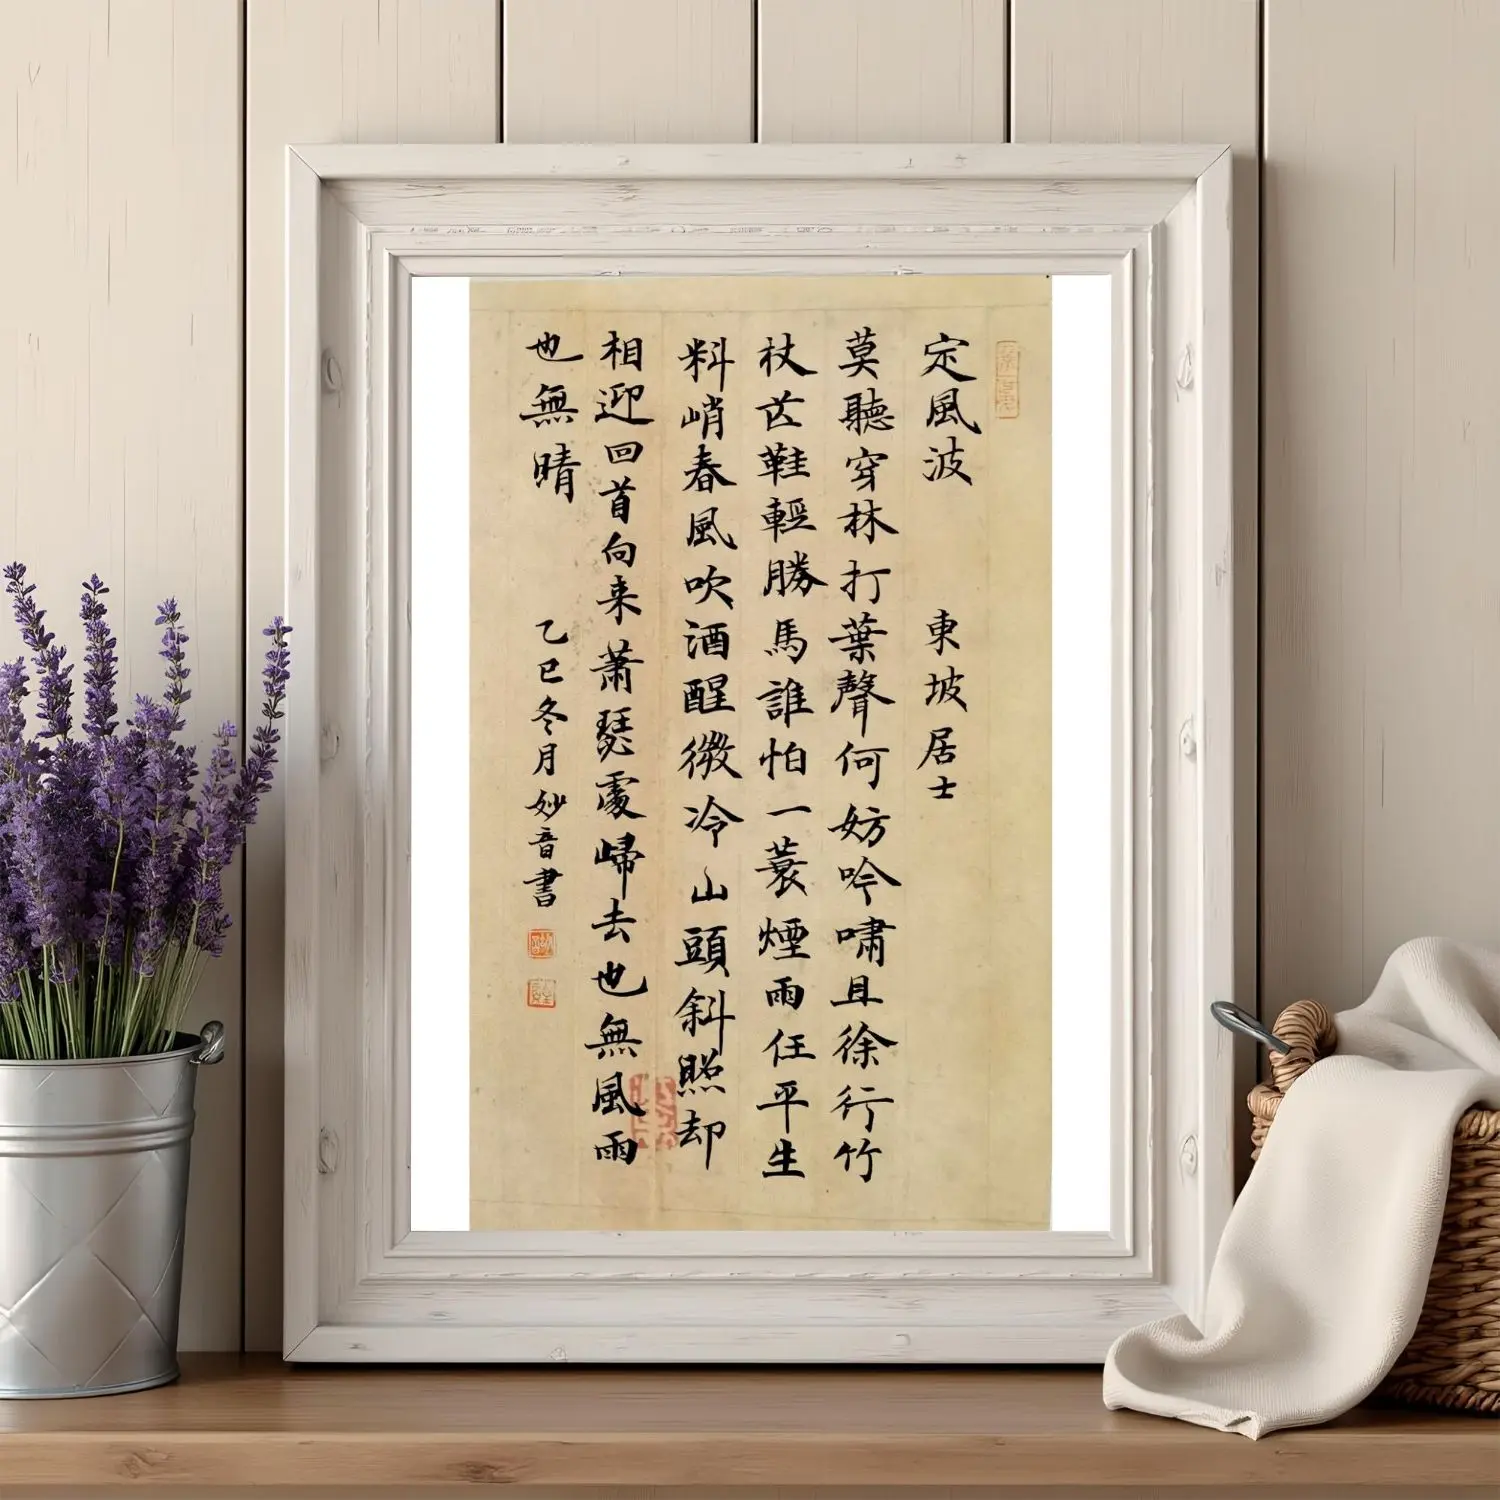 定風波 東坡居士
莫聽穿林打葉聲何妨吟嘯且徐行竹
杖芒鞋輕勝馬誰怕一蓑煙雨任平生
料峭春風吹酒醒微冷山頭斜照却
相迎回首向来蕭瑟處歸去也無風雨
也無晴 乙巳冬月妙音書